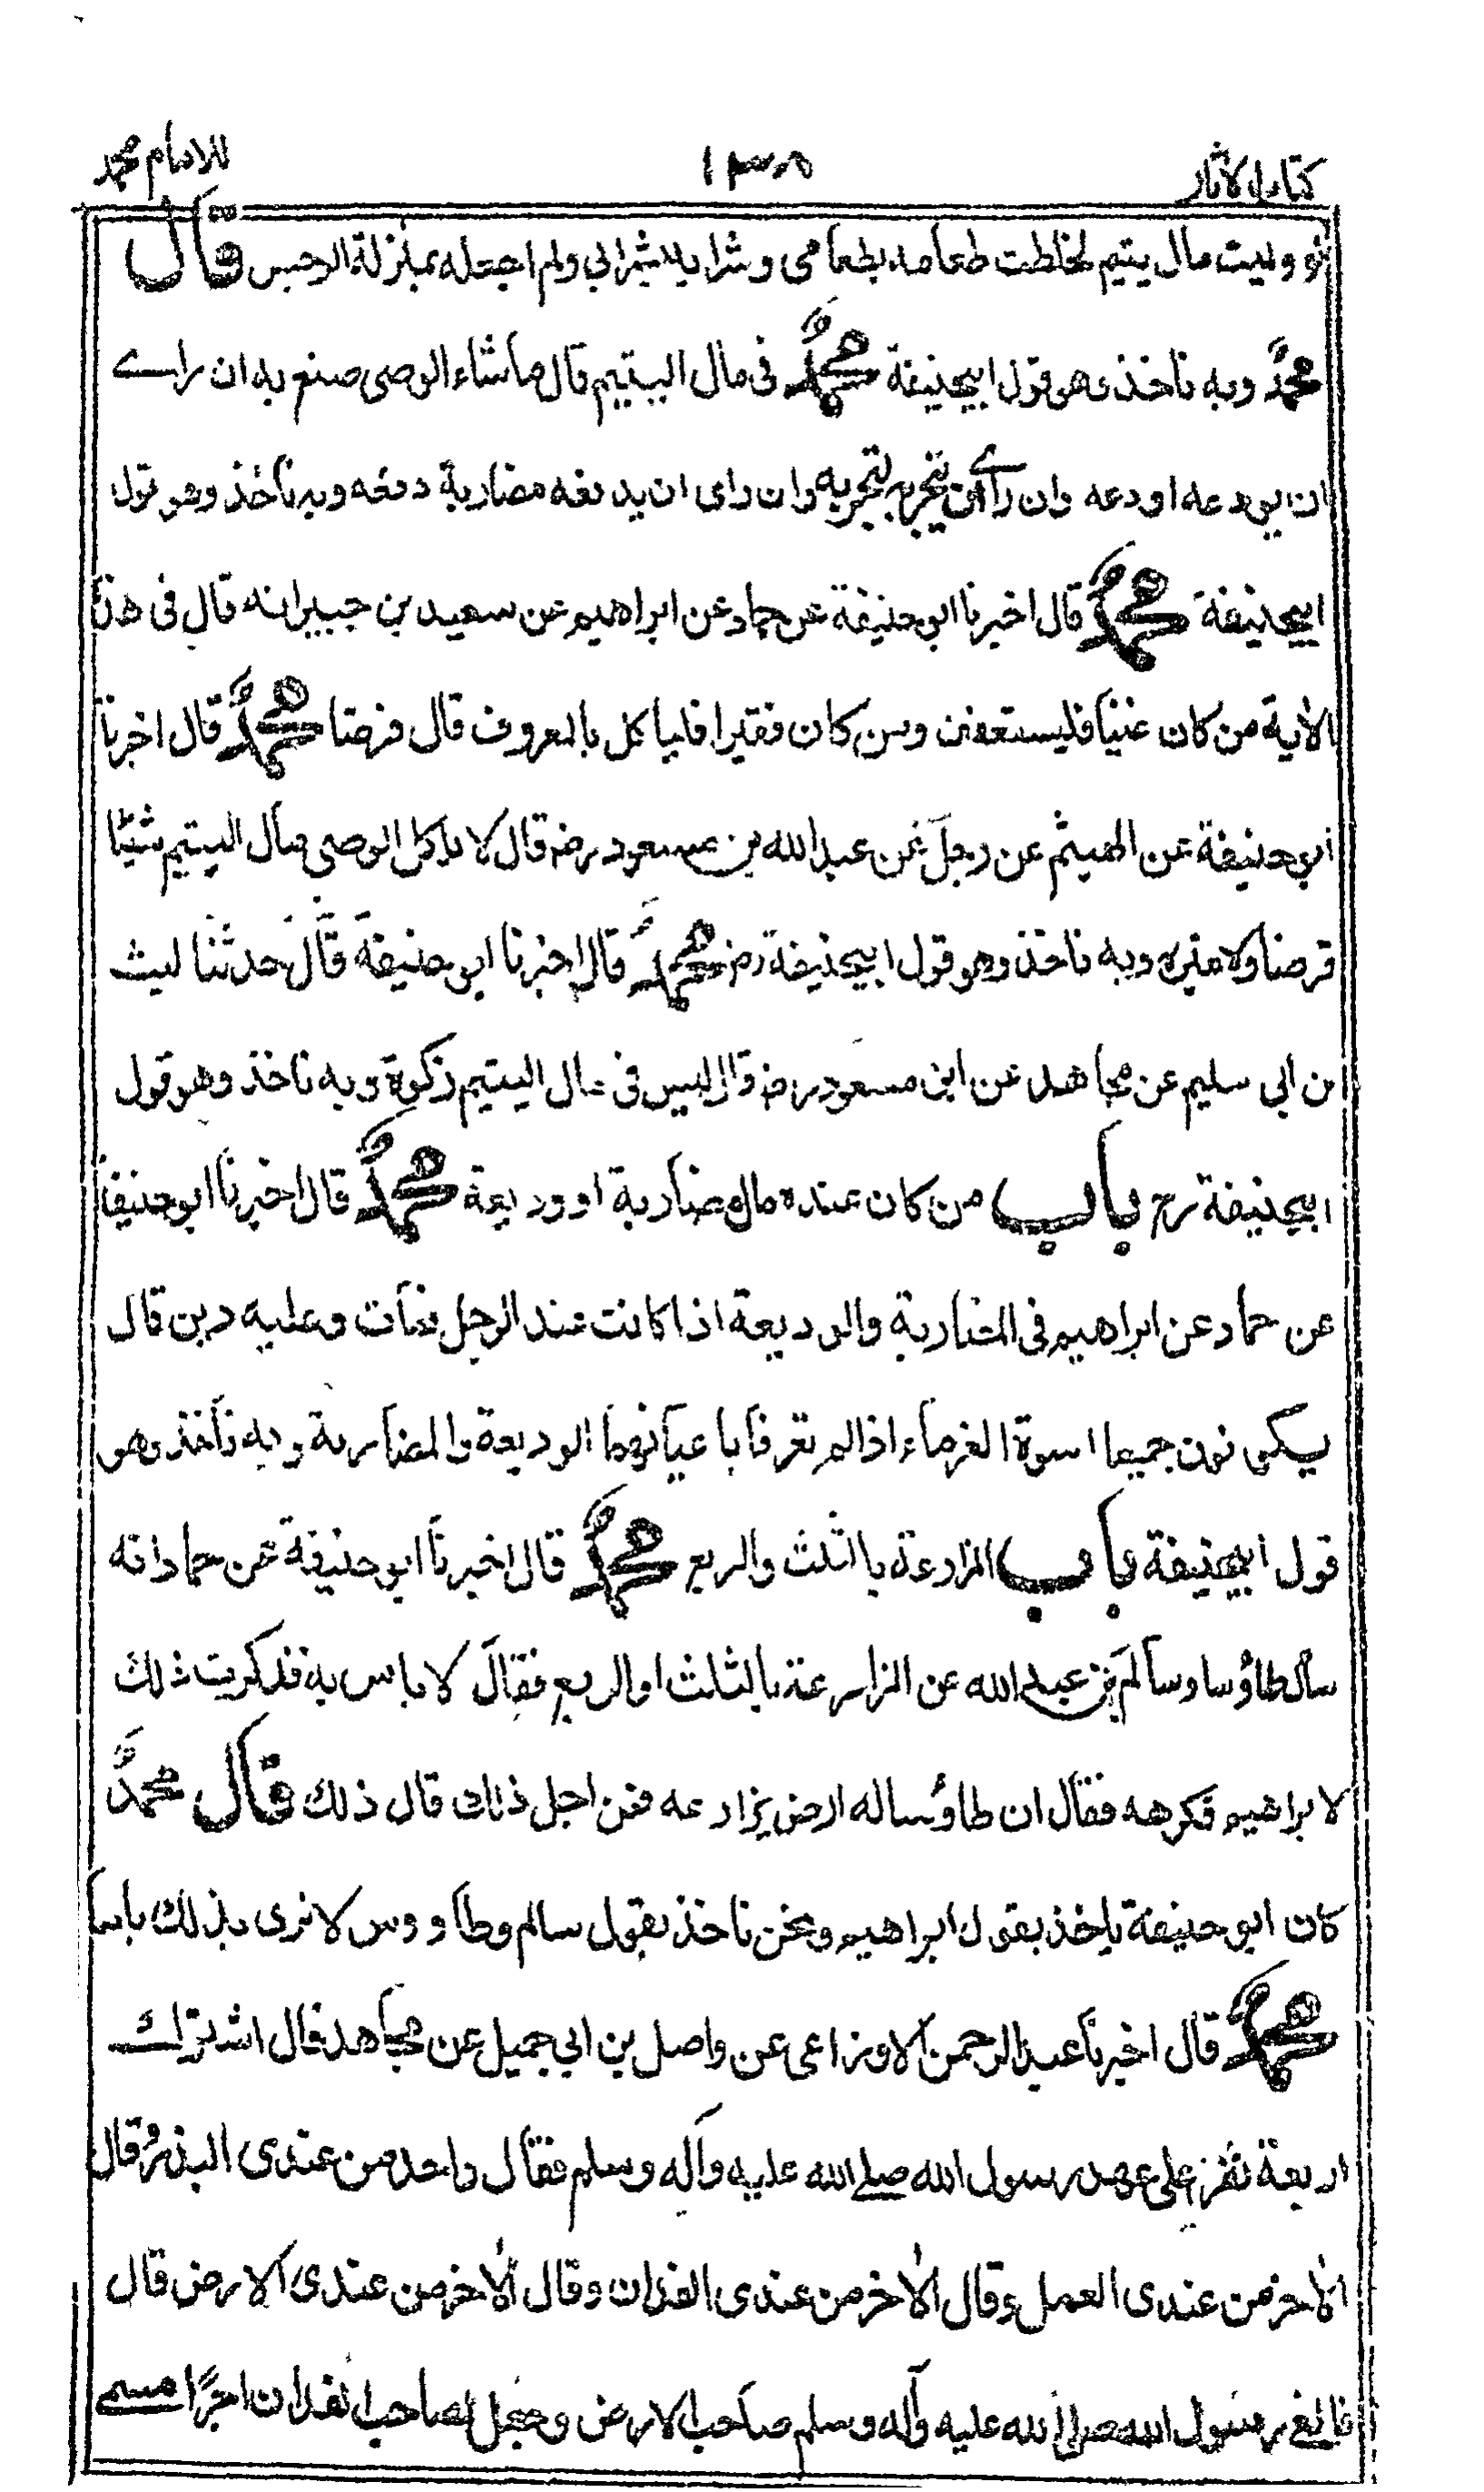 كتاب الاثار ١٣٨ للامام محمد
لو وليت مال يتيم لخلطت طعامه بطعامى وشرابه بشرابى ولم اجعله بمنزلة الرجس قال
محمدٌ وبه ناخذ وهو قول ابيحنيفة محمدٌ فى مال اليتيم قال ماشاء الوصى صنع به ان راے
ان يودعه اودعه وان راے ان يتجربه تجربه وان راى ان يدفعه مضاربة دفعه وبه ناخذ وهو قول
ابيحنيفة محمدٌ قال اخبرنا ابو حنيفة عن حماد عن ابراهيم عن سعيد بن جبير انه قال فى هذه
الاية من كان غنيا فليستعفف ومن كان فقيرا فلياكل بالمعروف قال قرضا محمدٌ قال اخبرنا
ابو حنيفة عن الهيثم عن رجل عن عبد الله بن مسعود رضـ قال لا ياكل الوصى مال اليتيم شيئا
قرضا ولا غيره وبه ناخذ وهو قول ابيحنيفة رضـ محمدٌ قال اخبرنا ابو حنيفة قال حدثنا ليث
بن ابى سليم عن مجاهد عن ابن مسعود رضـ قال ليس فى مال اليتيم زكوة وبه ناخذ وهو قول
ابيحنيفة رح باب من كان عنده مال مضاربة او وديعة محمدٌ قال اخبرنا ابو حنيفة
عن حماد عن ابراهيم فى المضاربة والوديعة اذا كانت عند الرجل فمات وعليه دين قال
يكونون جميعا اسوة الغرماء اذا لم تعرفا باعيانهما الوديعة والمضاربة وبه ناخذ وهو
قول ابيحنيفة باب المزارعة بالثلث والربع محمدٌ قال اخبرنا ابو حنيفة عن حماد انه
سأل طاؤسا وسالم بن عبد الله عن المزارعة بالثلث او الربع فقال لا باس به فذكرت ذلك
لابراهيم فكرهه فقال ان طاؤسا له ارض يزارعه فمن اجل ذلك قال ذلك قال محمدٌ
كان ابو حنيفة ياخذ بقول ابراهيم ونحن ناخذ بقول سالم وطاووس لا نرى بذلك باسا
محمدٌ قال اخبرنا عبد الرحمن الاوزاعى عن واصل بن ابى جميل عن مجاهد قال اشترك
اربعة نفر على عهد رسول الله صلے الله عليه وآله وسلم فقال واحد من عندى البذر وقال
الاٰخر من عندى العمل وقال الاٰخر من عندى الفدان وقال الاٰخر من عندى الارض قال
فالغى رسول الله صلى الله عليه وآله وسلم صاحب الارض وجعل لصاحب الفدان اجرًا مسمے